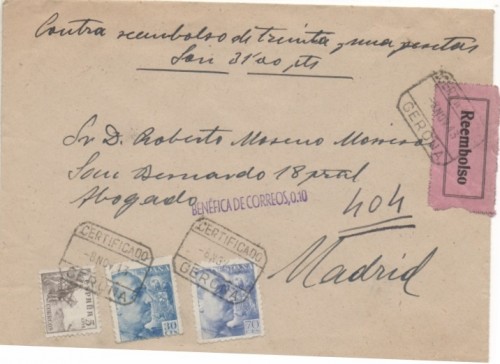 Contra reembolso de treinta y una pesetas
Son 31'00 pts
Reembolso
GERONA
Sr D. Roberto Moreno Moreno
San Bernardo 18 pral
Abogado
BENÉFICA DE CORREOS, 0.10
404
Madrid
CERTIFICADO
GERONA
CERTIFICADO
GERONA
5
30
CTS
70
CTS